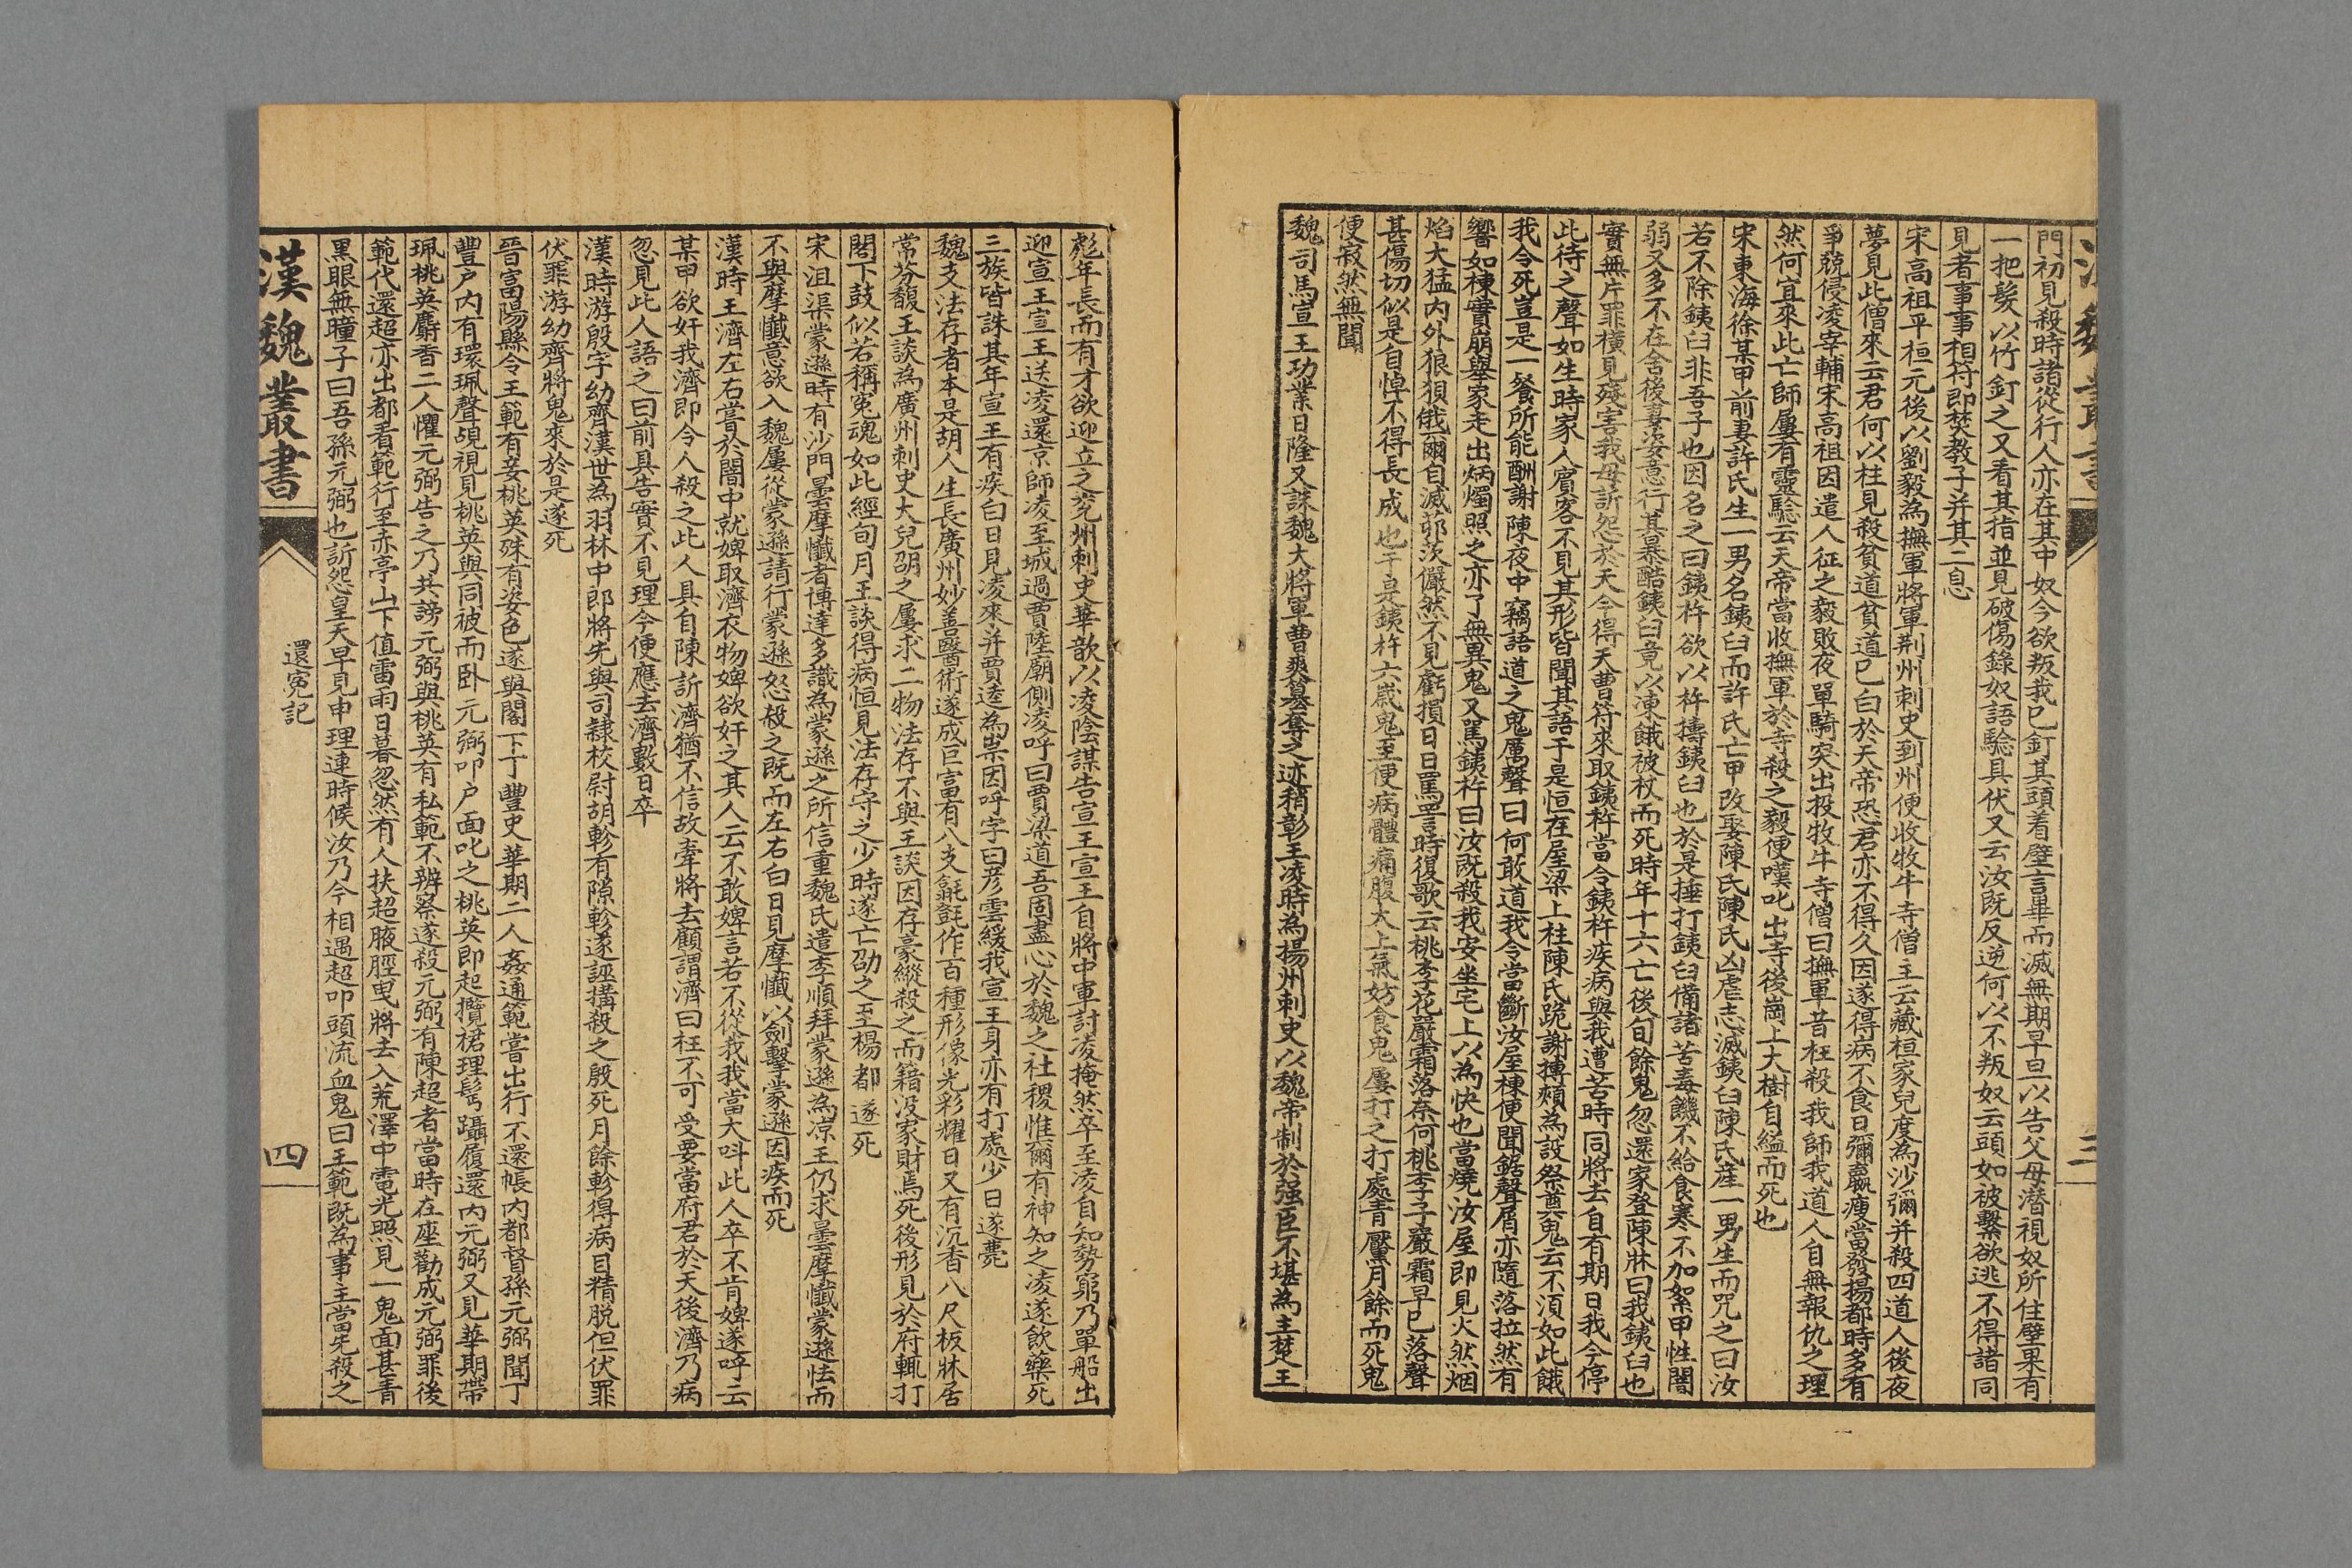 門初見殺時諸從行人亦在其中奴今欲叛我已釘其頭着壁言畢而滅無期早旦以告父母潛視奴所住壁果有
一把髮以竹釘之又看其指並見破傷錄奴語驗具伏又云汝既反逆何以不叛奴云頭如被繫欲逃不得諸同
見者事事相符即焚教子并其二息
宋高祖平桓元後以劉毅為撫軍將軍荆州刺史到州便收牧牛寺僧主云藏桓家兒度為沙彌并殺四道人後夜
夢見此僧來云君何以枉見殺貧道貧道已白於天帝恐君亦不得久因遂得病不食日彌羸瘦當發揚都時多有
爭競侵凌宰輔宋高祖因遣人征之毅敗夜單騎突出投牧牛寺僧曰撫軍昔枉殺我師我道人自無報仇之理
然何宜來此亡師屢有靈驗云天帝當收撫軍於寺殺之毅便嘆吒出寺後崗上大樹自縊而死也
宋東海徐某甲前妻許氏生一男名鐵臼而許氏亡甲改娶陳氏陳氏凶虐志滅鐵臼陳氏產一男生而咒之曰汝
若不除鐵臼非吾子也因名之曰鐵杵欲以杵擣鐵臼也於是捶打鐵臼備諸苦毒饑不給食寒不加絮甲性闇
弱又多不在舍後妻恣意行其暴酷鐵臼竟以凍餓被杖而死時年十六亡後旬餘鬼忽還家登陳牀曰我鐵臼也
實無片罪橫見殘害我母訴怨於天今得天曹符來取鐵杵當令鐵杵疾病與我遭苦時同將去自有期日我今停
此待之聲如生時家人賓客不見其形皆聞其語于是恒在屋梁上柱陳氏跪謝搏頰為設祭奠鬼云不須如此餓
我令死豈是一餐所能酬謝陳夜中竊語道之鬼厲聲曰何敢道我今當斷汝屋棟便聞鋸聲屑亦隨落拉然有
響如棟實崩舉家走出炳燭照之亦了無異鬼又罵鐵杵曰汝既殺我安坐宅上以為快也當燒汝屋即見火然烟
焰大猛內外狼狽俄爾自滅茆茨儼然不見虧損日日罵詈時復歌云桃李花嚴霜落奈何桃李子嚴霜早已落聲
甚傷切似是自悼不得長成也于是鐵杵六歲鬼至便病體痛腹大上氣妨食鬼屢打之打處青黶月餘而死鬼
便寂然無聞
魏司馬宣王功業日隆又誅魏大將軍曹爽篡奪之迹稍彰王凌時為揚州刺史以魏帝制於強臣不堪為主楚王
彪年長而有才欲迎立之兗州刺史華歆以凌陰謀告宣王宣王自將中軍討凌掩然卒至凌自知勢窮乃單船出
迎宣王宣王送凌還京師凌至城過賈陸廟側凌呼曰賈梁道吾固盡心於魏之社稷惟爾有神知之凌遂飲藥死
三族皆誅其年宣王有疾白日見凌來并賈逵為祟因呼字曰彥雲緩我宣王身亦有打處少日遂薨
魏支法存者本是胡人生長廣州妙善醫術遂成巨富有八支㲣㲪作百種形像光彩耀日又有沉香八尺板牀居
常芬馥王談為廣州刺史大兒劭之屢求二物法存不與王談因存豪縱殺之而籍沒家財焉死後形見於府輒打
閣下鼓似若稱冤魂如此經旬月王談得病恒見法存守之少時遂亡劭之至楊都遂死
宋沮渠蒙遜時有沙門曇摩懺者博達多識為蒙遜之所信重魏氏遣李順拜蒙遜為凉王仍求曇摩懺蒙遜怯而
不與摩懺意欲入魏屢從蒙遜請行蒙遜怒殺之既而左右白日見摩懺以劍擊蒙遜因疾而死
漢時王濟左右嘗於闇中就婢取濟衣物婢欲奸之其人云不敢婢言若不從我我當大叫此人卒不肯婢遂呼云
某甲欲奸我濟即令人殺之此人具自陳訴濟猶不信故牽將去顧謂濟曰枉不可受要當府君於天後濟乃病
忽見此人語之曰前具告實不見理今便應去濟數日卒
漢時游殷字幼齊漢世為羽林中郎將先與司隸校尉胡軫有隙軫遂誣搆殺之殷死月餘軫得病目精脱但伏罪
伏罪游幼齊將鬼來於是遂死
晉富陽縣令王範有妾桃英殊有姿色遂與閣下丁豐史華期二人姦通範嘗出行不還帳內都督孫元弼聞丁
豐户內有環珮聲覘視見桃英與同被而卧元弼叩户面叱之桃英即起攬裙理髩躡履還內元弼又見華期帶
珮桃英麝香二人懼元弼告之乃共謗元弼與桃英有私範不辨察遂殺元弼有陳超者當時在座勸成元弼罪後
範代還超亦出都看範行至赤亭山下值雷雨日暮忽然有人扶超腋脛曳將去入荒澤中電光照見一鬼面甚青
黑眼無瞳子曰吾孫元弼也訴怨皇天早見申理連時候汝乃今相遇超叩頭流血鬼曰王範既為事主當先殺之
漢魏叢書
還冤記
四